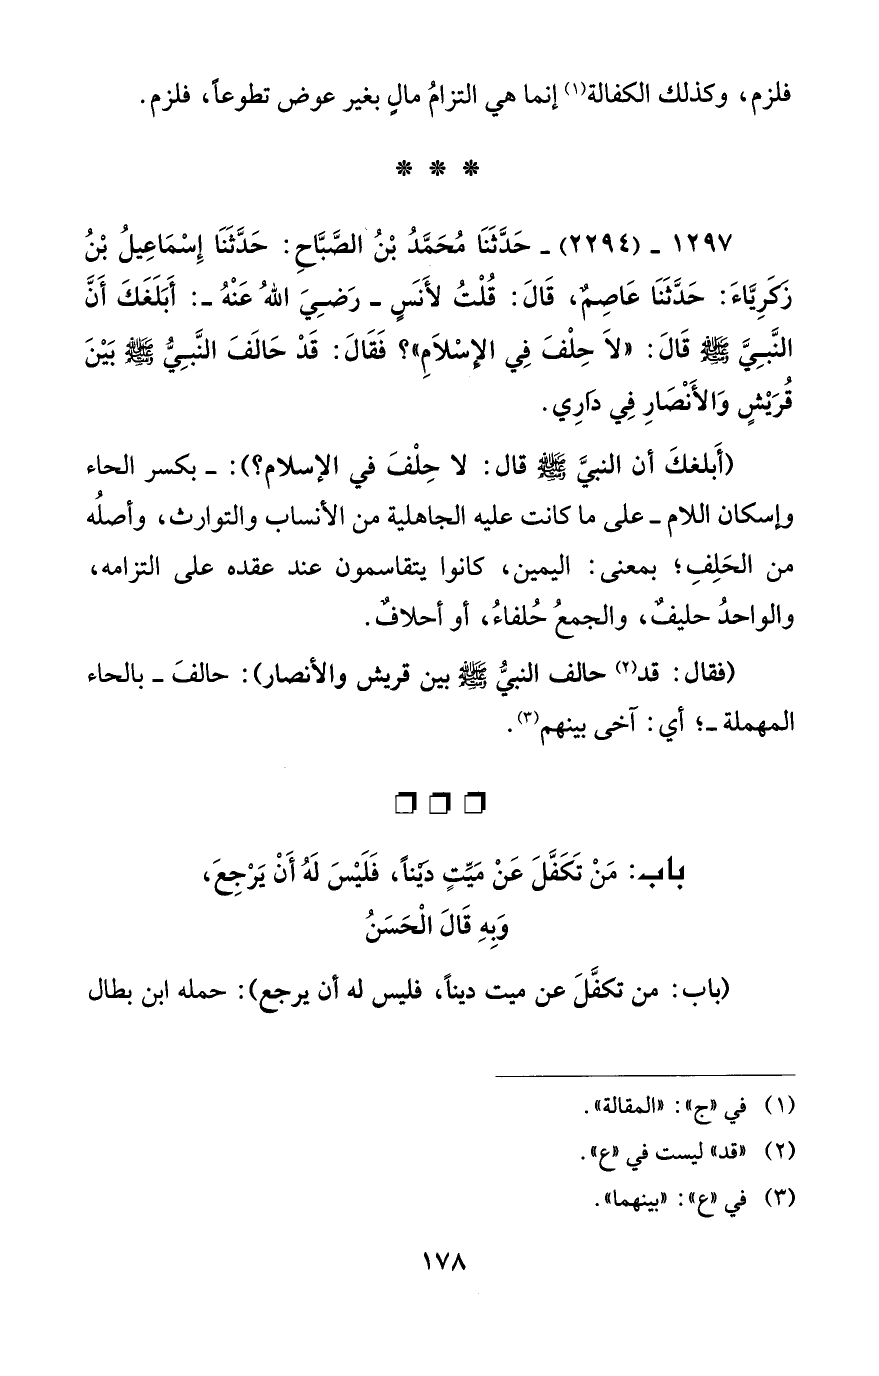 فلزم، وكذلك الكفالة(١) إنما هي التزامُ مالٍ بغير عوض تطوعاً، فلزم.
* * *
١٢٩٧ ـ (٢٢٩٤) ـ حَدَّثَنَا مُحَمَّدُ بْنُ الصَّبَّاحِ: حَدَّثَنَا إِسْمَاعِيلُ بْنُ
زَكَرِيَّاءَ: حَدَّثَنَا عَاصِمٌ، قَالَ: قُلْتُ لأَنَسٍ ـ رَضِيَ اللهُ عَنْهُ ـ: أَبَلَغَكَ أَنَّ
النَّبِيَّ ﷺ قَالَ: «لاَ حِلْفَ فِي الإِسْلاَمِ»؟ فَقَالَ: قَدْ حَالَفَ النَّبِيُّ ﷺ بَيْنَ
قُرَيْشٍ وَالأَنْصَارِ فِي دَارِي.
(أَبلغكَ أن النبيَّ ﷺ قال: لا حِلْفَ في الإسلام؟): ـ بكسر الحاء
وإسكان اللام ـ على ما كانت عليه الجاهلية من الأنساب والتوارث، وأصلُه
من الحَلِفِ؛ بمعنى: اليمين، كانوا يتقاسمون عند عقده على التزامه،
والواحدُ حليفٌ، والجمعُ حُلفاءُ، أو أحلافٌ.
(فقال: قد(٢) حالف النبيُّ ﷺ بين قريش والأنصار): حالفَ ـ بالحاء
المهملة ـ؛ أي: آخى بينهم(٣).
❒ ❒ ❒
باب: مَنْ تَكَفَّلَ عَنْ مَيِّتٍ دَيْناً، فَلَيْسَ لَهُ أَنْ يَرْجِعَ،
وَبِهِ قَالَ الْحَسَنُ
(باب: من تكفَّلَ عن ميت ديناً، فليس له أن يرجع): حمله ابن بطال
(١) في «ج»: «المقالة».
(٢) «قد» ليست في «ع».
(٣) في «ع»: «بينهما».
١٧٨